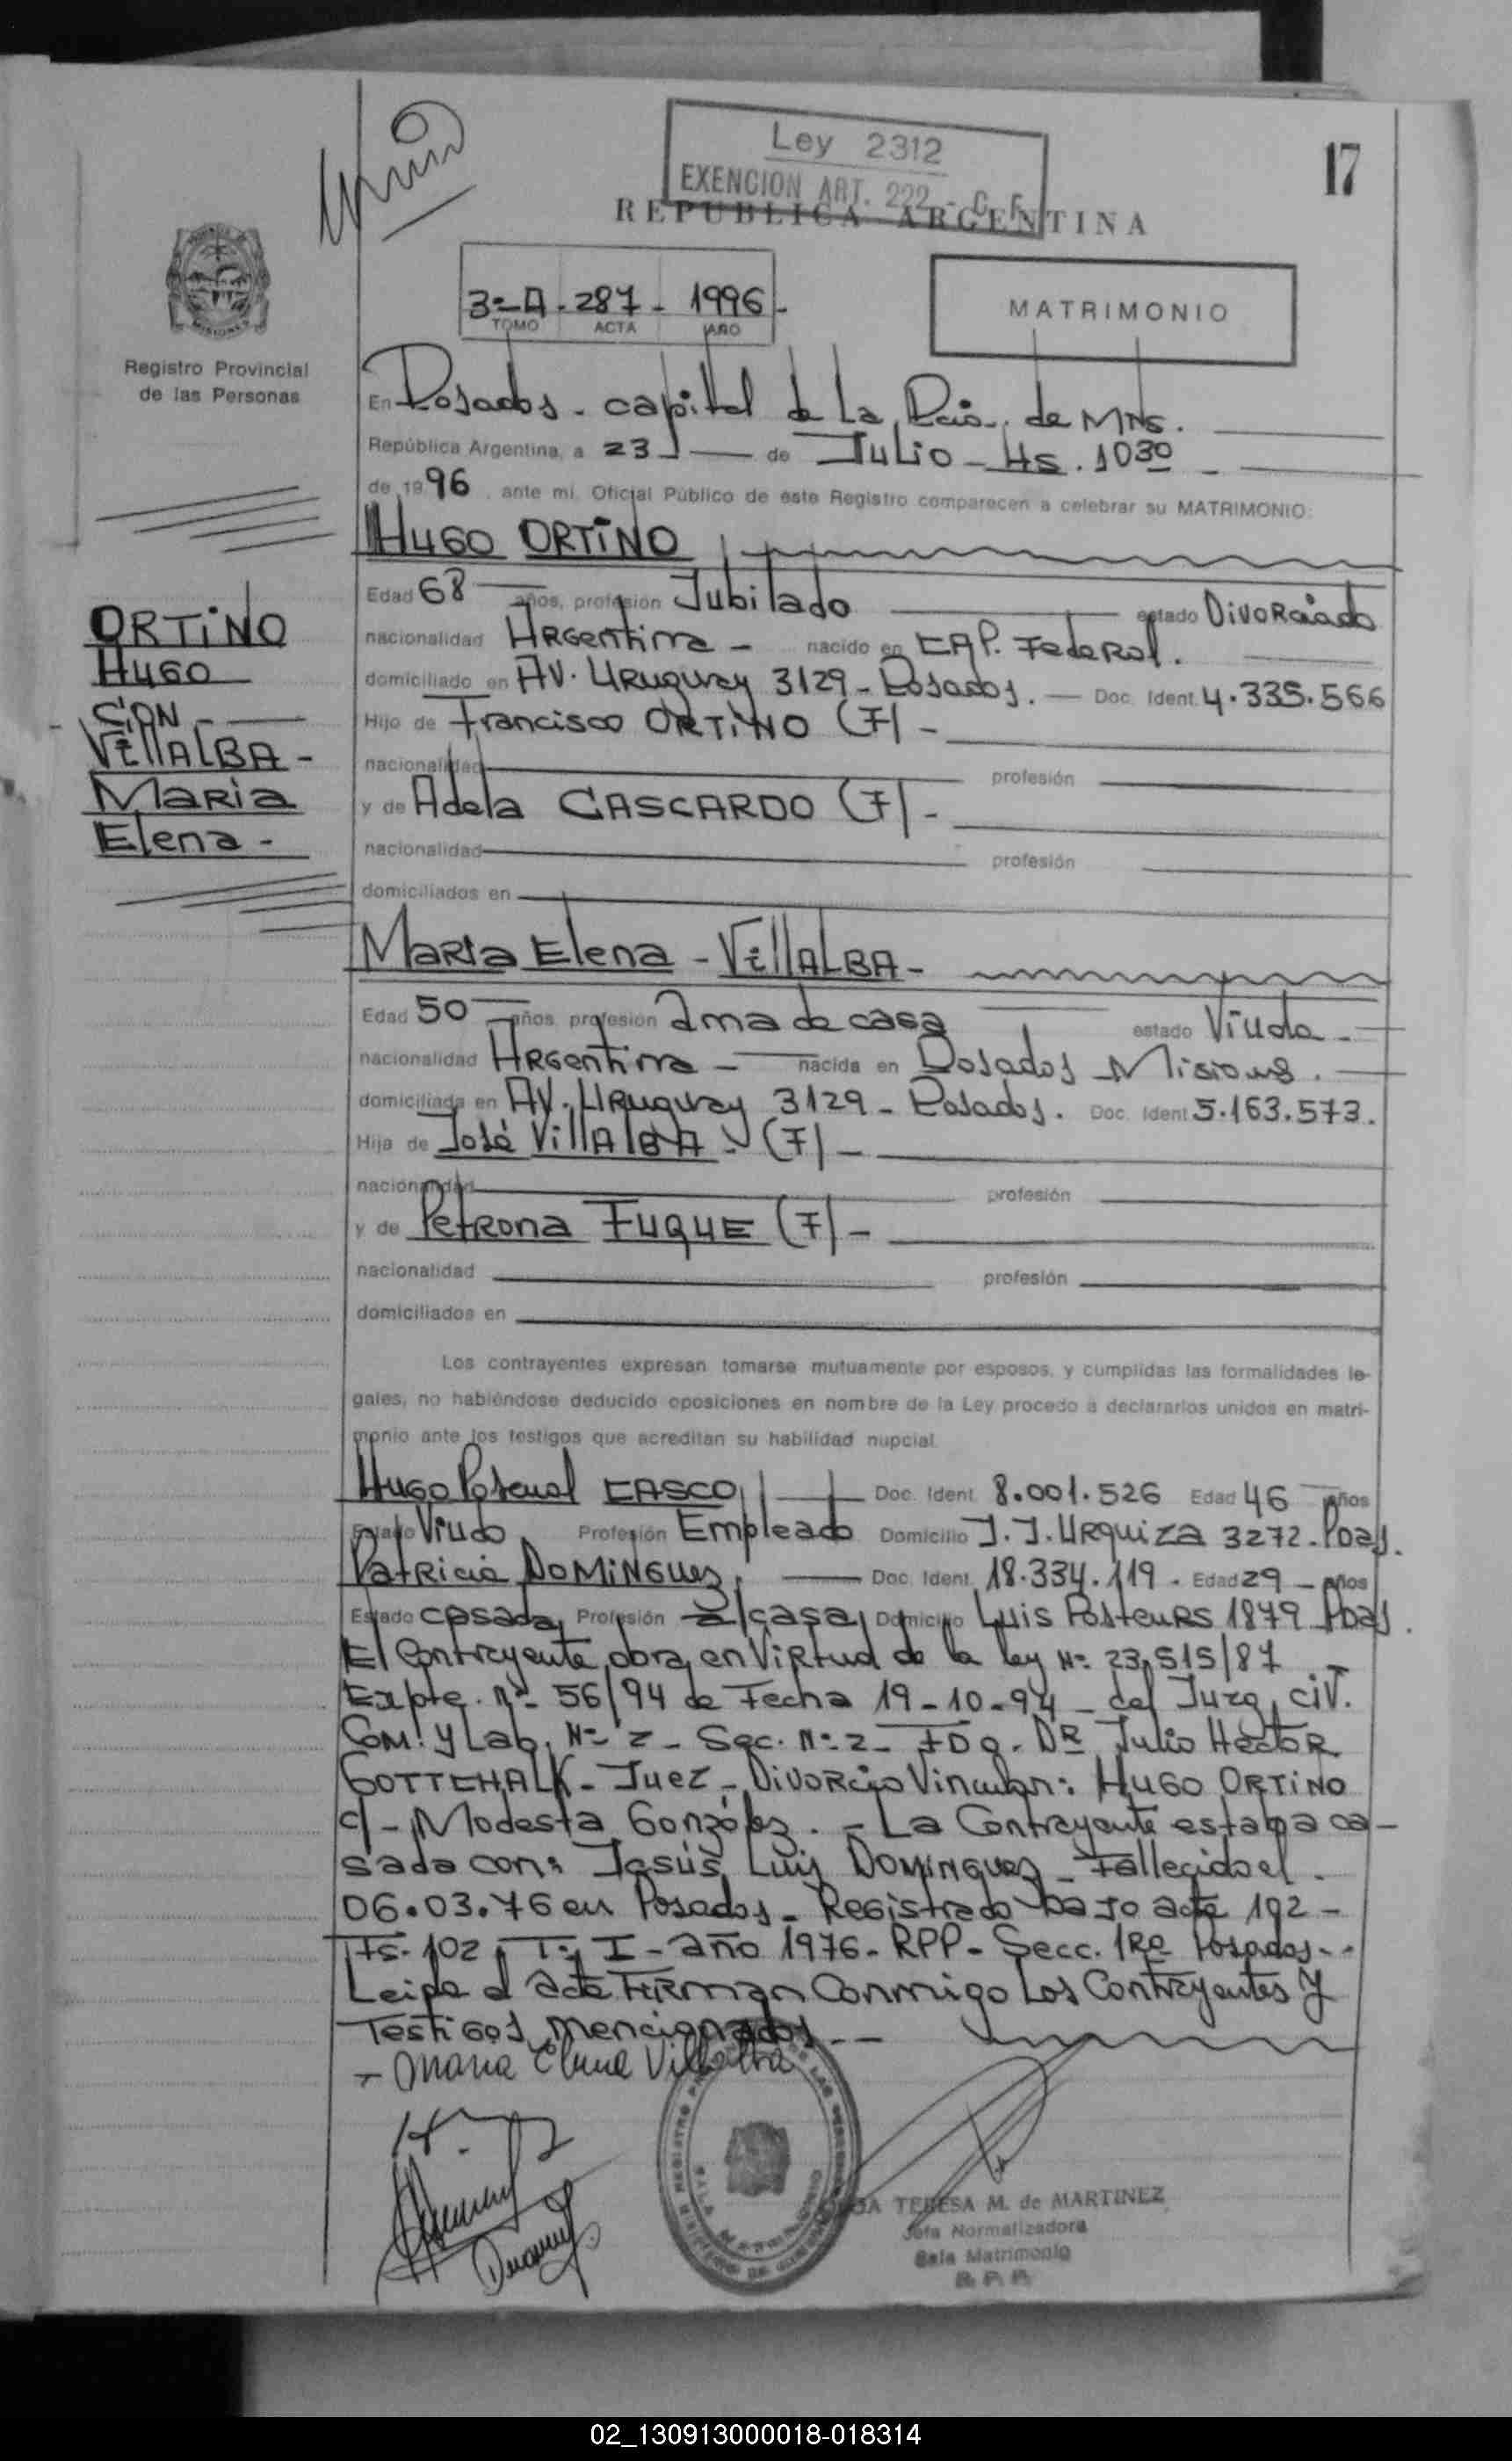 Ley 2312
EXENCION ART. 222 - C. F.
17
REPUBLICA ARGENTINA
3º-A - 287 - 1996 -
TOMO ACTA AÑO
MATRIMONIO
Registro Provincial
de las Personas
En Posadas - capital de La Pcia. de MNS.
República Argentina, a 23 de Julio - Hs. 1030
de 1996, ante mi, Oficial Público de este Registro comparecen a celebrar su MATRIMONIO:
HUGO ORTINO
Edad 68 años, profesión Jubilado estado Divorciado
nacionalidad Argentina - nacido en CAP. Federal.
domiciliado en AV. Uruguay 3129 - Posadas. - Doc. Ident. 4.335.566
Hijo de Francisco ORTINO (F) -
nacionalidad profesión
y de Adela CASCARDO (F) -
nacionalidad profesión
domiciliados en
ORTINO
HUGO
CON -
VILLALBA -
Maria
Elena -
Maria Elena - VILLALBA -
Edad 50 años profesión Ama de casa estado Viuda -
nacionalidad Argentina - nacida en Posadas Misiones.
domiciliada en AV. Uruguay 3129 - Posadas. Doc. Ident. 5.163.573.
Hija de José VILLALBA - (F) -
nacionalidad profesión
y de Petrona FUQUE (F) -
nacionalidad profesión
domiciliados en
Los contrayentes expresan tomarse mutuamente por esposos, y cumplidas las formalidades le-
gales, no habiéndose deducido oposiciones en nombre de la Ley procedo a declararlos unidos en matri-
monio ante los testigos que acreditan su habilidad nupcial.
Hugo Pascual CASCO Doc. Ident. 8.001.526 Edad 46 años
Estado Viudo Profesión Empleado Domicilio J. J. Urquiza 3272 - Pdas.
Patricia DOMINGUEZ, Doc. Ident. 18.334.119 - Edad 29 - años
Estado casada, Profesión a/casa, Domicilio Luis Pasteurs 1879 Pdas.
El Contrayente obra en Virtud de la ley Nº 23.515/87
Expte. nº 56/94 de Fecha 19-10-94 - del Juzg. civ.
Com. y Lab. Nº 2 - Sec. Nº 2 - Dr Julio Hector
GOTTCHALK - Juez - Divorcio Vincular: HUGO ORTINO
c/ - Modesta González. - La Contrayente estaba ca-
sada con: Jesús Luis DOMINGUEZ - Fallecido el
06.03.76 en Posadas - Registrado bajo acta 192 -
Fs. 102, Tº I - año 1976 - RPP - Secc. 1Ra Posadas. -
Leida el acta Firman Conmigo Los Contrayentes y
Testigos mencionados -
- Maria Elena Villalba
TERESA M. de MARTINEZ
Jefa Normalizadora
Sala Matrimonio
R. P. P.
02_130913000018-018314